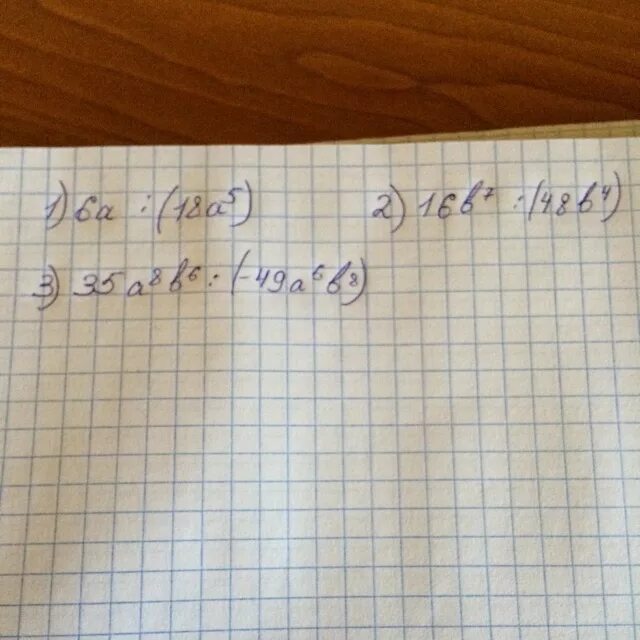 1) 6a : (18a⁵) 2) 16b⁷ : (48b⁴)
3) 35a⁸b⁶ : (-49a⁶b⁸)